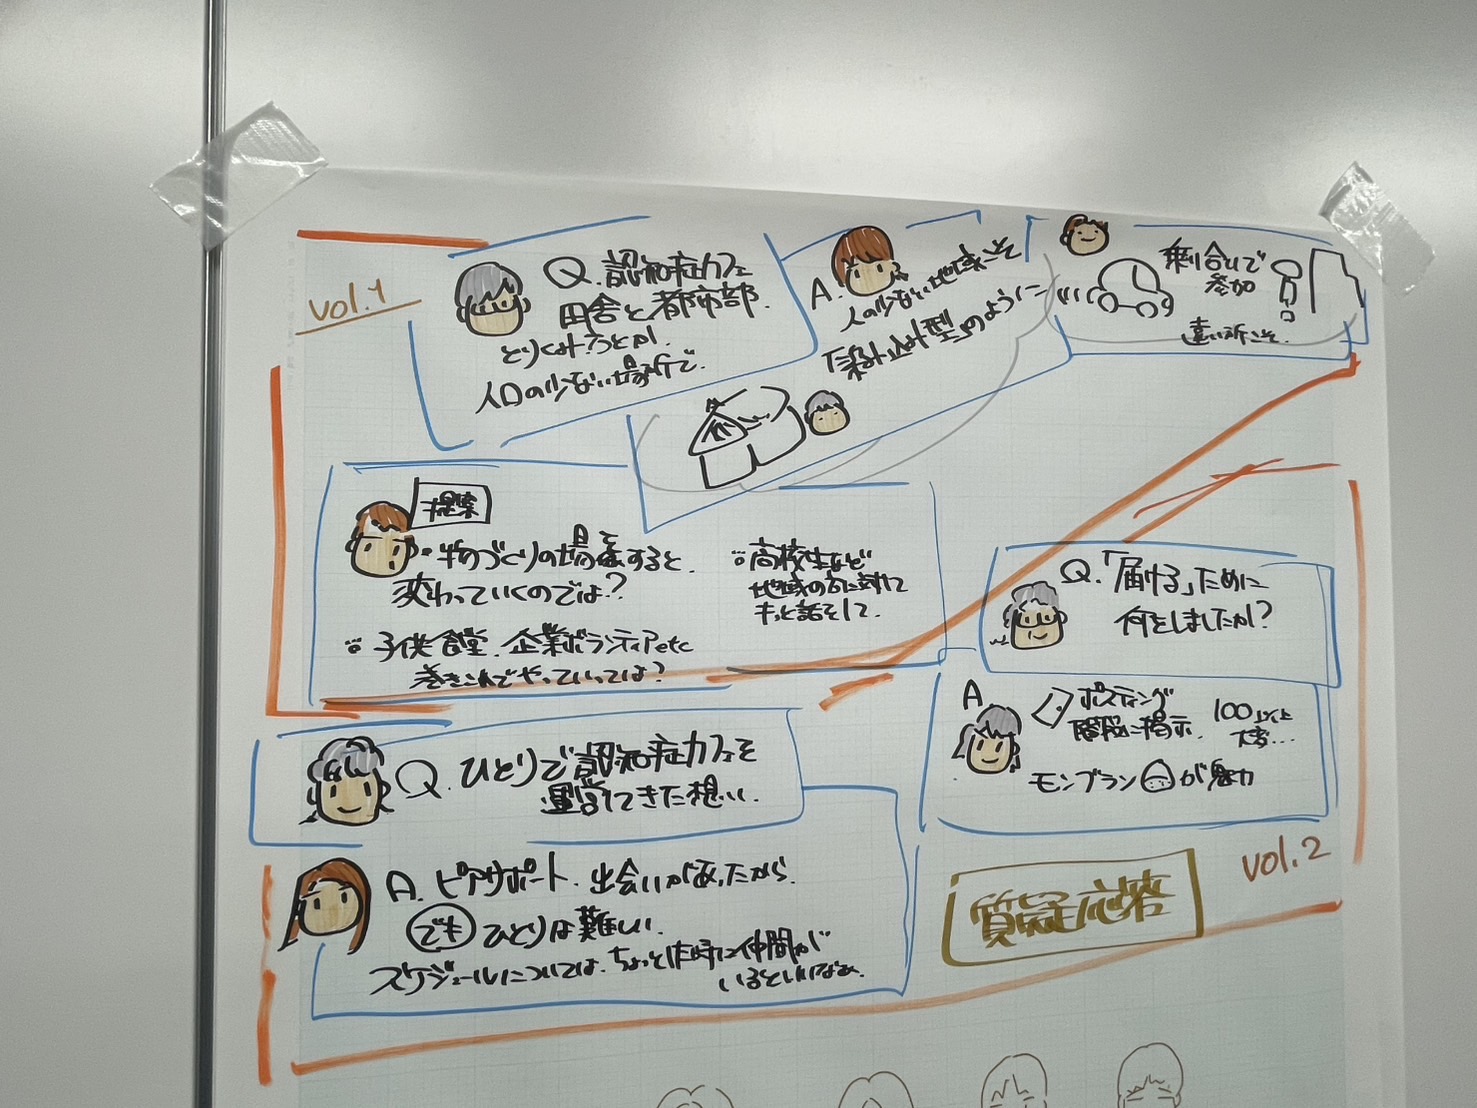 vol.1
Q.認知症カフェ
田舎と都市部.
とりくみ方とか.
人口の少ない場所で.
A.
人の少ない地域こそ
「染み込み型」のように
乗り合いで
参加
遠い所こそ.
提案
・物づくりの場をすると
変わっていくのでは?
・子供食堂.企業ボランティアetc
巻きこんでやっていっては?
・高校生など
地域の方に対して
もっと話をして.
Q.「届ける」ために
何をしましたか?
A
ポスティング
掲示.
100以上
大変...
モンブランが魅力
vol.2
Q.ひとりで認知症カフェを
運営してきた想い.
A.ピアサポート.出会いがあったから.
でも ひとりは難しい.
スケジュールについては.ちょっとした時に仲間が
いるといいなあ.
質疑応答